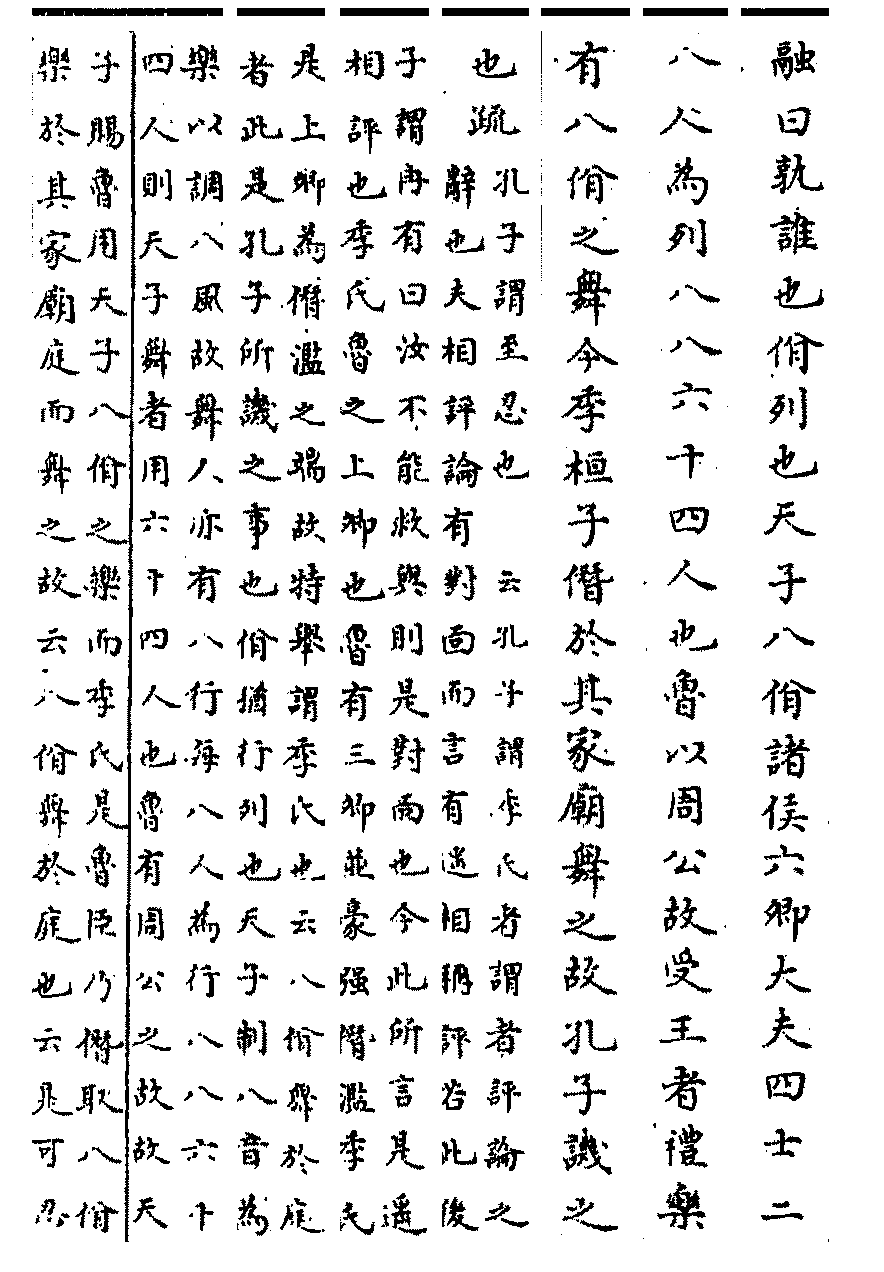 融曰孰誰也佾列也天子八佾諸侯六卿大夫四士二
八人為列八八六十四人也魯以周公故受王者禮樂
有八佾之舞今季桓子僭於其家廟舞之故孔子譏之
也疏
孔子謂至忍也 云孔子謂季氏者謂者評論之
辭也夫相評論有對面而言有遥相稱評若此後
子謂冉有曰汝不能救與則是對面也今此所言是遥
相評也季氏魯之上卿也魯有三卿並豪强僭濫季氏
是上卿為僭濫之端故特舉謂季氏也云八佾舞於庭
者此是孔子所譏之事也佾猶行列也天子制八音為
樂以調八風故舞人亦有八行每八人為行八八六十
四人則天子舞者用六十四人也魯有周公之故故天
子賜魯用天子八佾之樂而季氏是魯臣乃僭取八佾
樂於其家廟庭而舞之故云八佾舞於庭也云是可忍